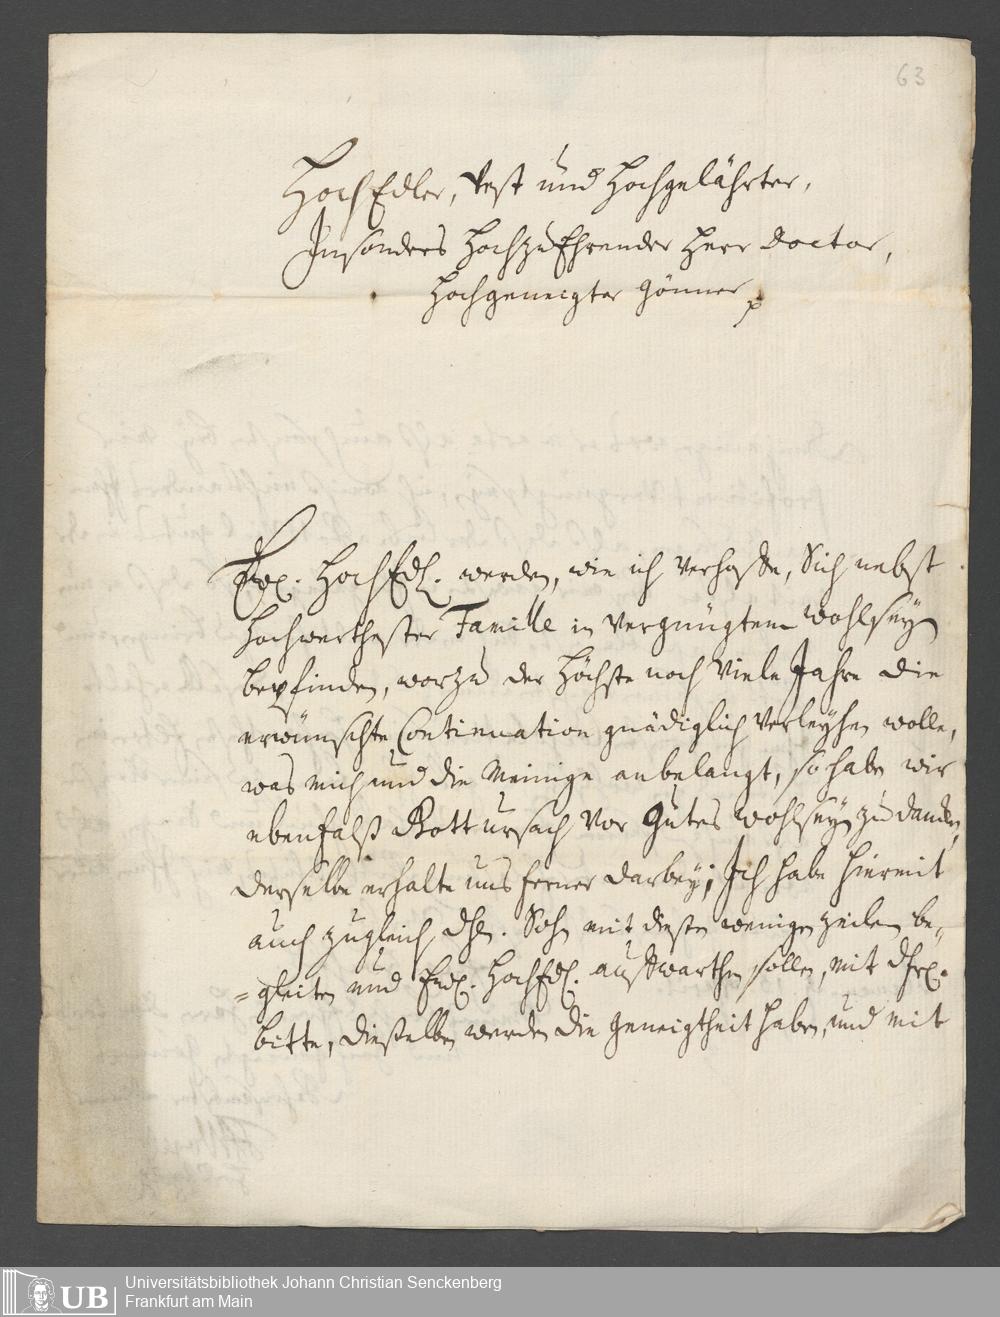 63
HochEdler, Vest und Hochgelährter,
Insonders HochzuEhrender Herr Doctor,
Hochgeneigter Gönner p
Ew. HochEdl. werden, wie ich verhoffe, Sich nebst
Hochwerthester Famille in vergnügtem wohlseyn
befinden, worzu der Höchste noch viele Jahre die
erwünschte Continuation gnädiglich verleyhen wolle,
was mich und die Meinige anbelangt, so haben wir
ebenfalß Gott ursach vor gutes wohlseyn zu dancken,
derselbe erhalte uns ferner darbey; Ich habe hiermit
auch zugleich dhl. Sohn mit diesen wenigen zeilen be-
=gleiten und Ew. HochEdl. aufwarthen sollen, mit
bitte, dieselben werden die geneigtheit haben, und mit
UB
Universitätsbibliothek Johann Christian Senckenberg
Frankfurt am Main